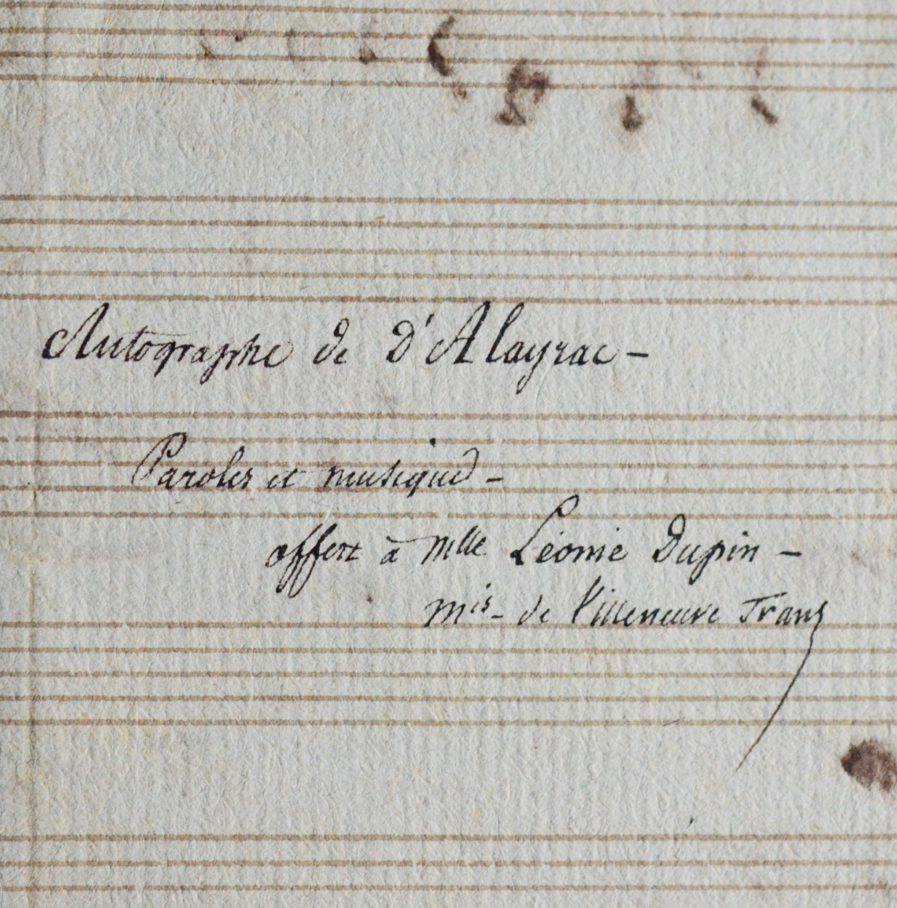 Autographe de D'Alayrac -
Paroles et musique -
offert à Mlle Léonie Dupin -
Mis - de Villeneuve Trans